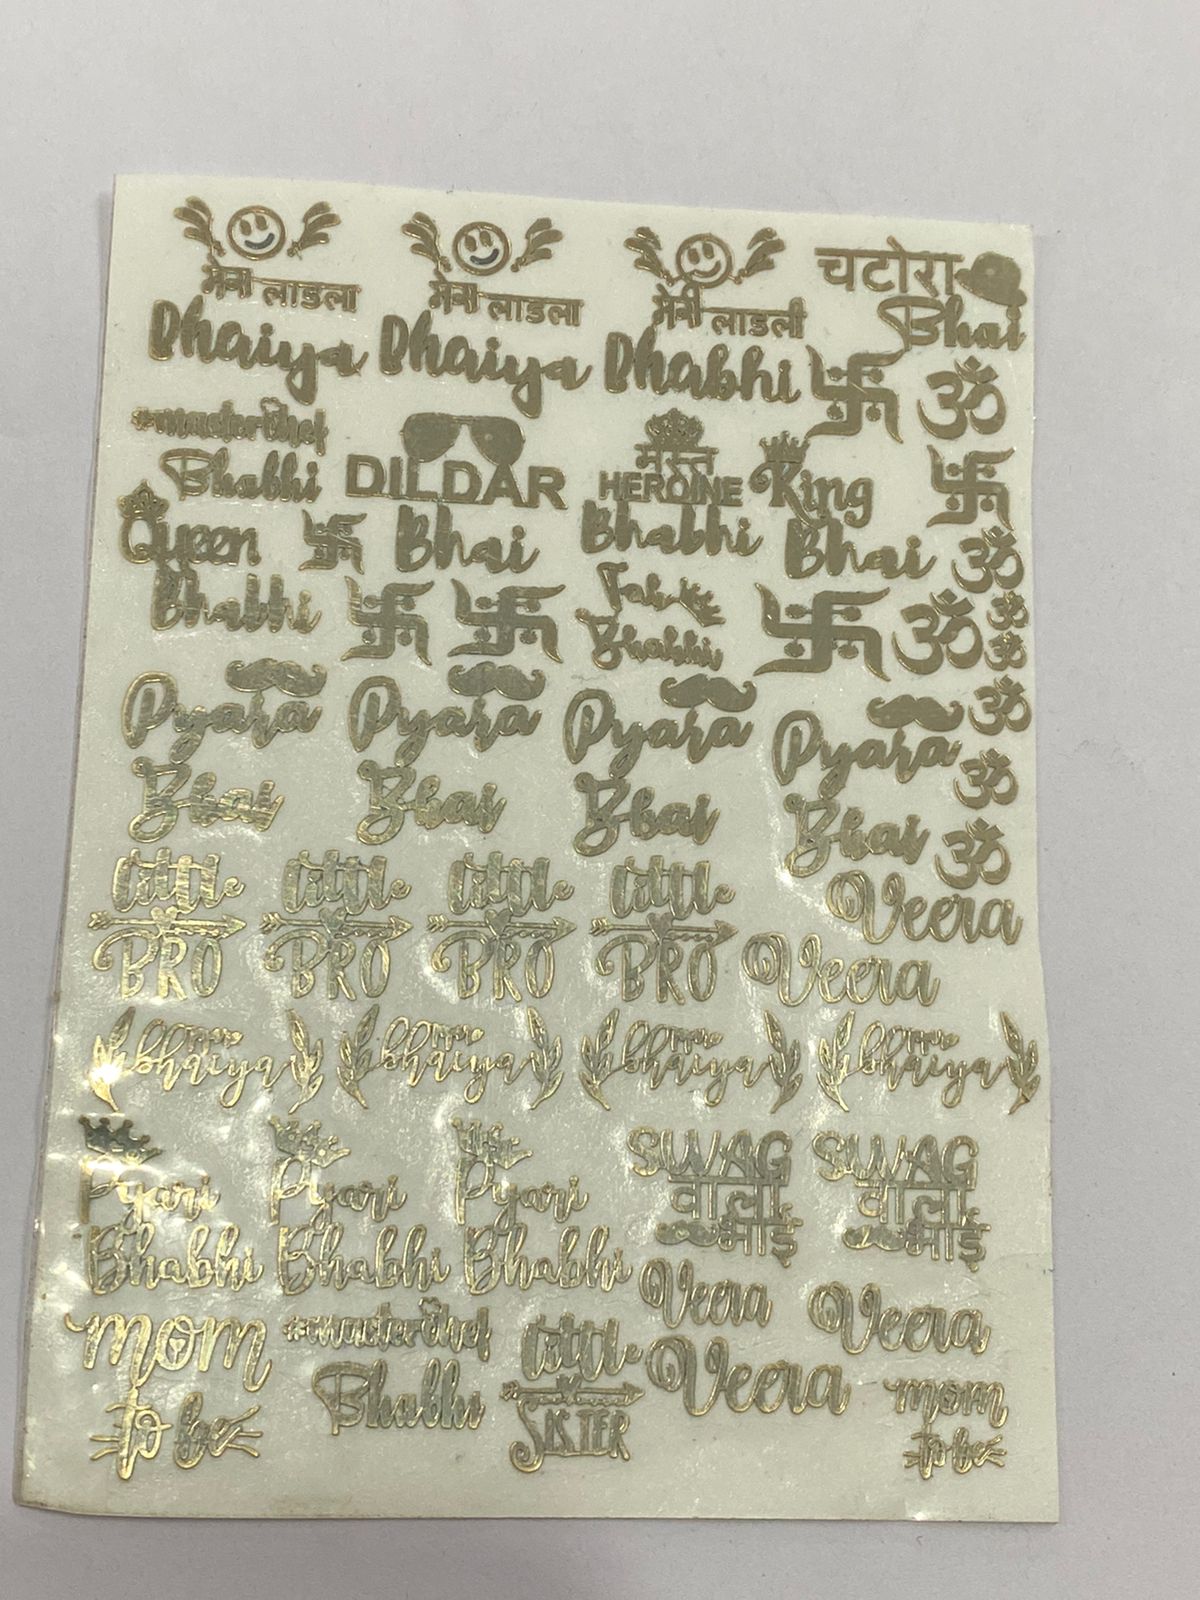 मेरा लाडला
Dhaiya
मेरा लाडला
Dhaiya
मेरी लाडली
Dhabhi
चटोरा
Bhai
ॐ
#masterchef
Bhabhi
DILDAR
Bhai
मस्त
HEROINE
Bhabhi
King
Bhai
ॐ
Queen
Bhabhi
Bhabhi
ॐ
ॐ
ॐ
Pyara
Bhai
Pyara
Bhai
Pyara
Bhai
Pyara
Bhai
ॐ
ॐ
ॐ
little
BRO
little
BRO
little
BRO
little
BRO
Veera
Veera
bhaiya
bhaiya
bhaiya
bhaiya
Pyari
Bhabhi
Pyari
Bhabhi
Pyari
Bhabhi
SWAG
वाला
भाई
SWAG
वाला
भाई
Veera
Veera
mom
to be
#masterchef
Bhabhi
little
SISTER
Veera
mom
to be